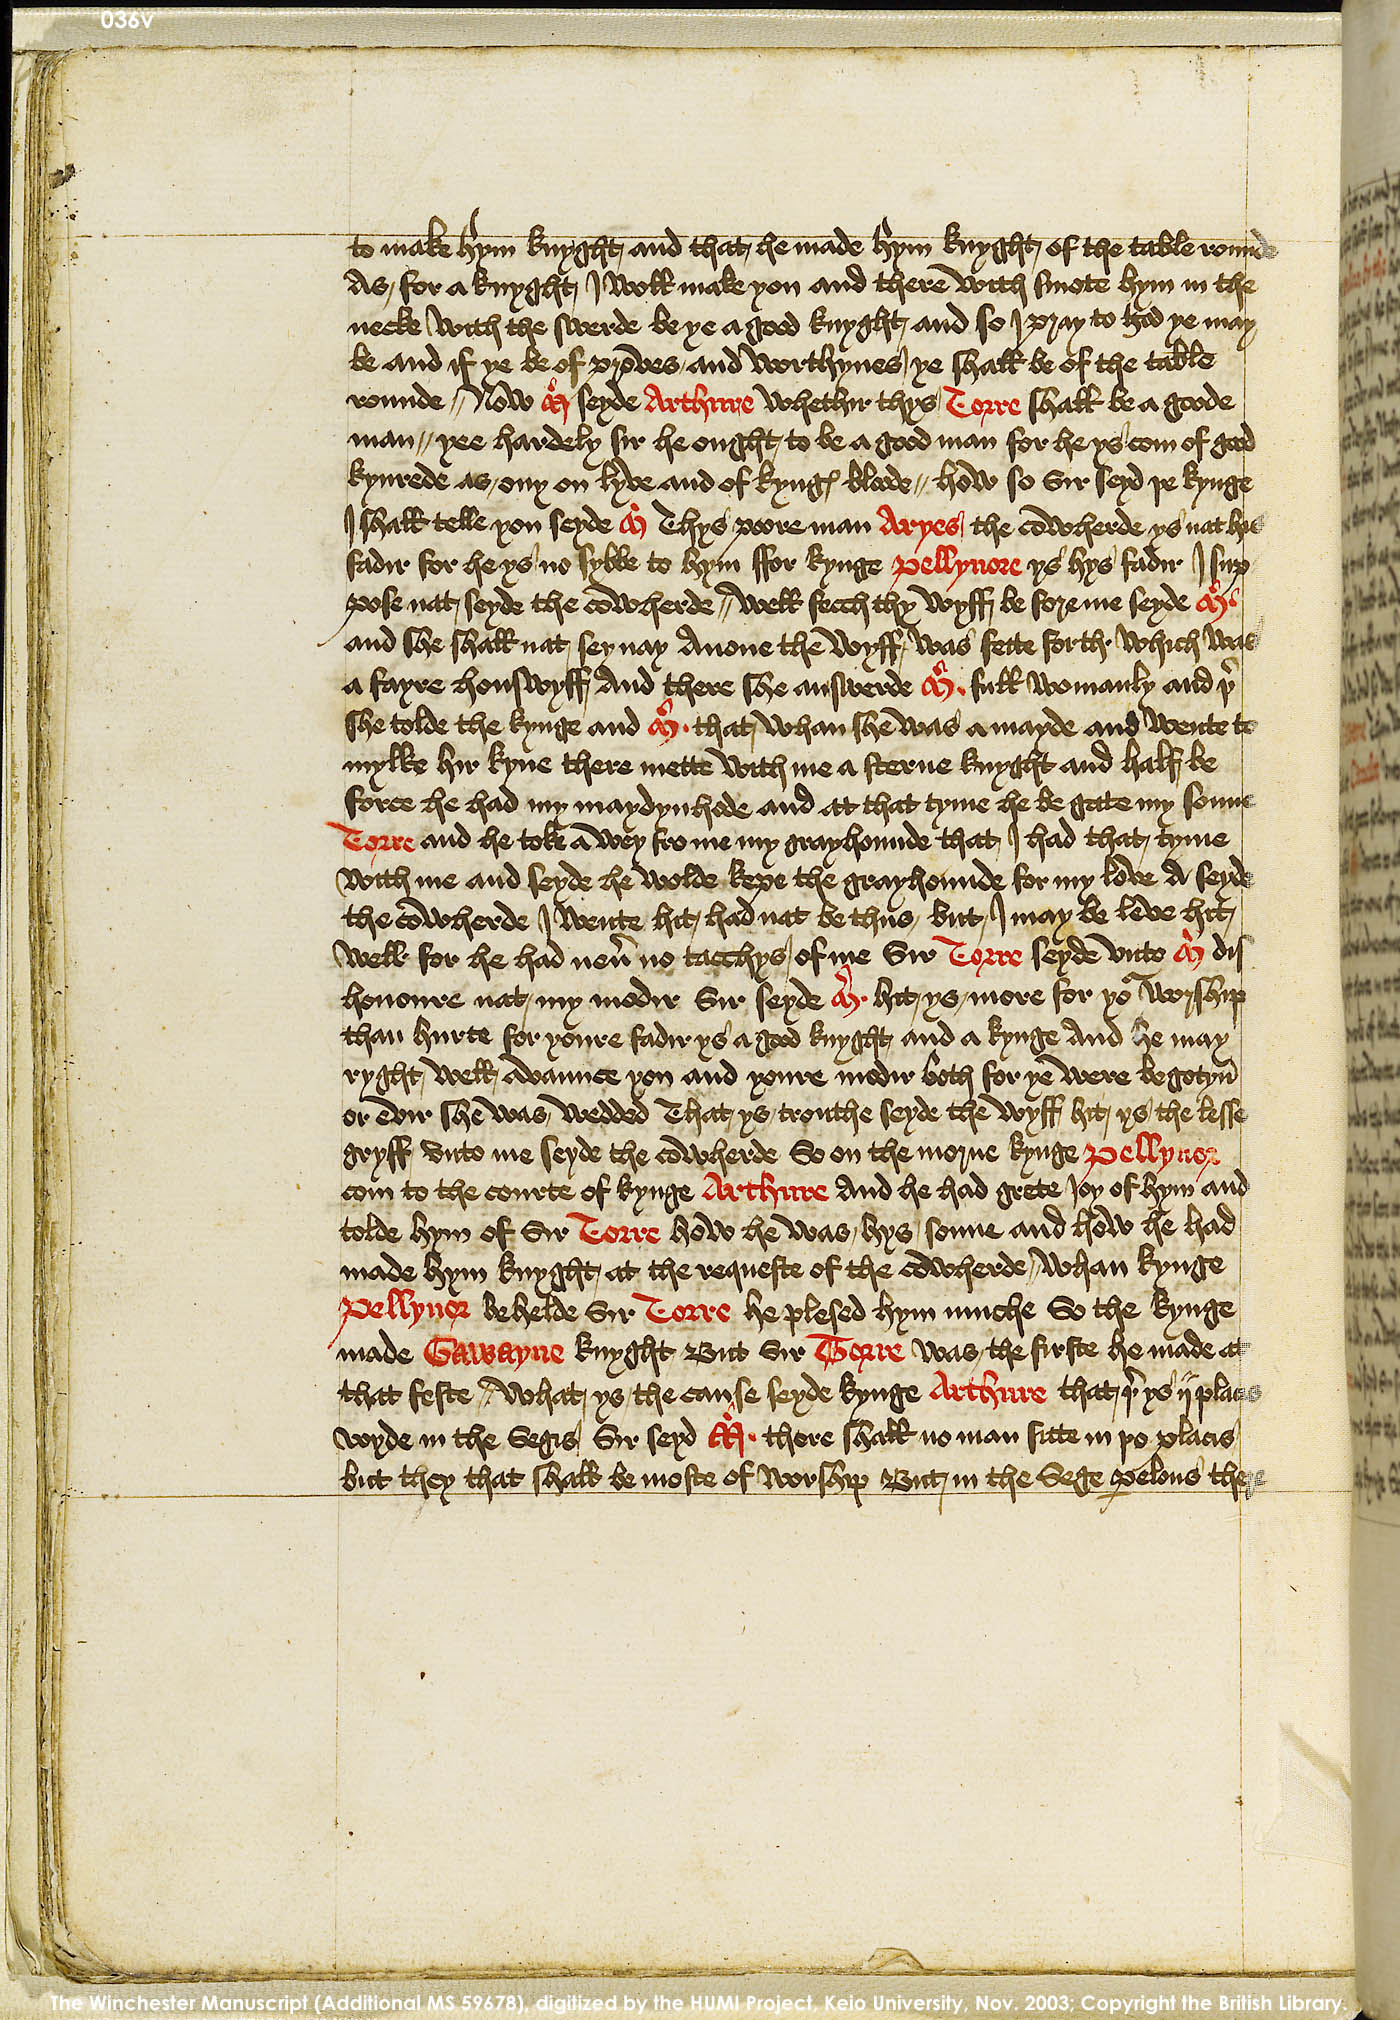 036v
to make hym knyght and that he made hym knyght of the table rounde
As for a knyght I woll make you and there with smote hym in the
necke with the swerde be ye a good knyght and so I pray to god ye may
be and if ye be of prowes and worthynes ye shall be of the table
rounde // Now M seyde Arthure whethir thys Torre shall be a goode
man // yee hardely sir he ought to be a good man for he ys com of good
kynrede as ony on lyve and of kyngꝭ bloode // how so Sir seyd þe kynge
I shall telle you seyde M Thys poore man Aryes the cowherde ys nat hys
fadir for he ys no sybbe to hym ffor kynge Pellynore ys hys fadir I sup
pose nat seyde the cowherde // well fecch thy wyff be fore me seyde M.
and she shall nat sey nay Anone the wyff was fette forth which was
a fayre houswyff And there she answerde M. full womanly and þer
she tolde the kynge and M. that whan she was a mayde and wente to
mylke hir kyne there mette with me a sterne knyght and half be
force he had my maydynhode and at that tyme he be gate my sonne
Torre and he toke a wey fro me my grayhounde that I had that tyme
with me and seyde he wolde kepe the grayhounde for my love A seyde
the cowherde I wente hit had nat be thus but I may be leve hit
well for he had neuer no tacchys of me Sir Torre seyde vnto M dis
honoure nat my modir Sir seyde M. hit ys more for yor worship
than hurte for youre fadir ys a good knyght and a kynge And he may
ryght well avaunce you and youre modir both for ye were begotyn
or evir she was wedded That ys trouthe seyde the wyff hit ys the lesse
gryff vnto me seyde the cowherde So on the morne kynge Pellynor
com to the courte of kynge Arthure And he had grete Joy of hym and
tolde hym of Sir Torre how he was hys sonne and how he had
made hym knyght at the requeste of the cowherde // Whan kynge
Pellynor behelde Sir Torre he plesed hym muche So the kynge
made Gawayne knyght But Sir Torre was the firste he made at
that feste // What ys the cause seyde kynge Arthure that þer ys ij placis
voyde in the Segis Sir seyd M. there shall no man sitte in þo placis
but they that shall be moste of worship But in the Sege pelous there
The Winchester Manuscript (Additional MS 59678), digitized by the HUMI Project, Keio University, Nov. 2003; Copyright the British Library.